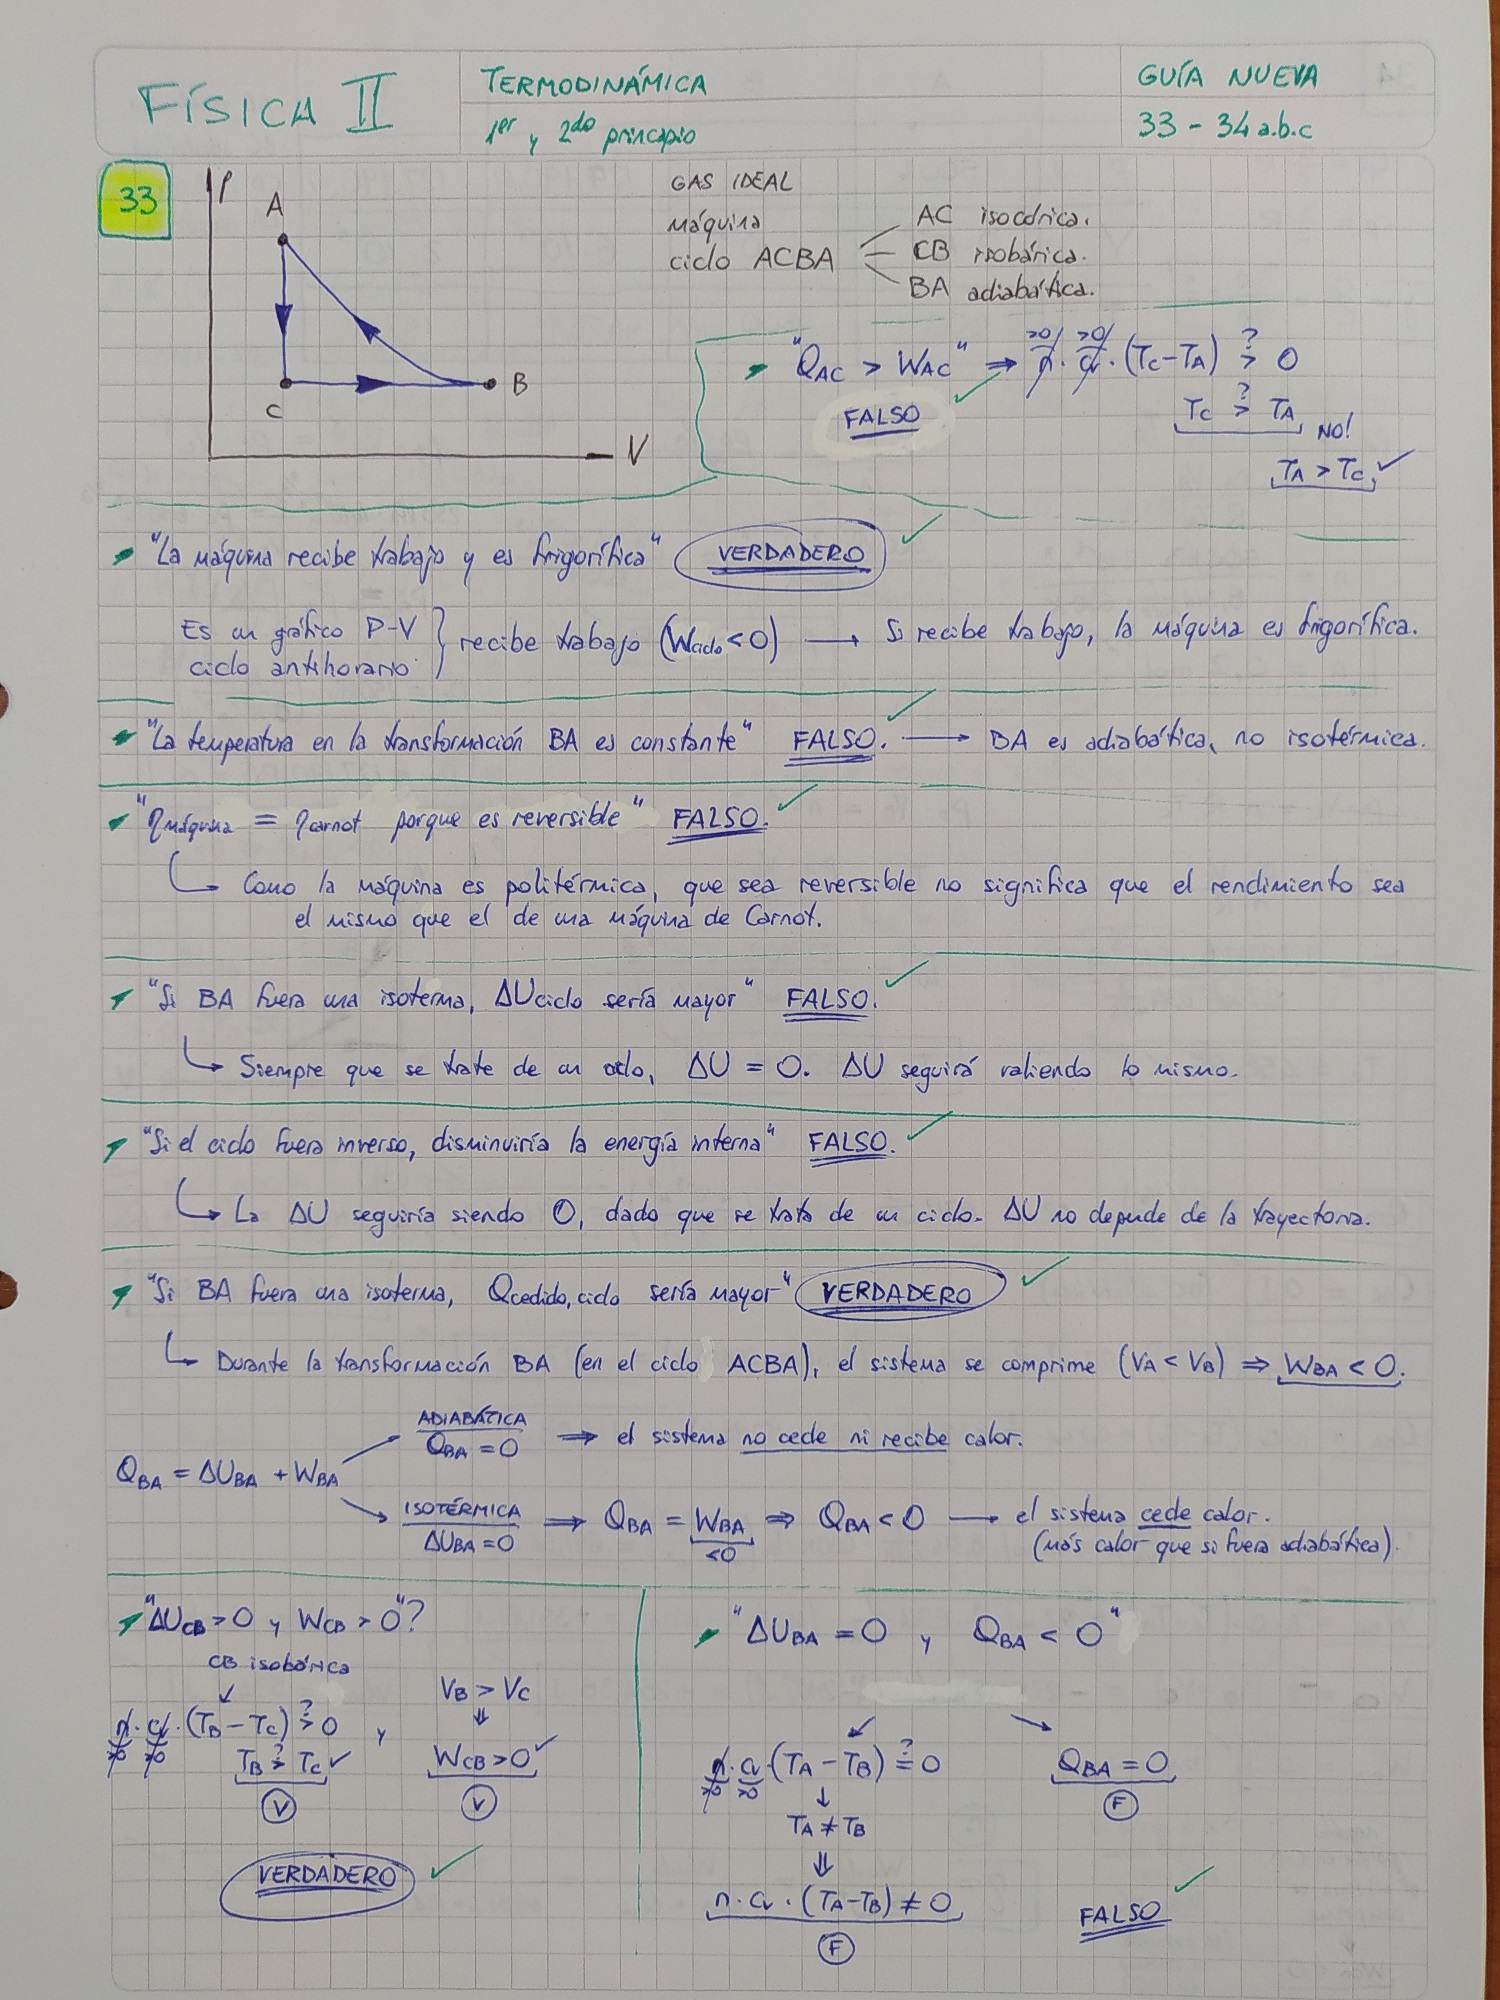 FÍSICA II
TERMODINÁMICA
1er y 2do principio
GUÍA NUEVA
33 - 34 a.b.c
33
P
A
C
B
V
GAS IDEAL
máquina
ciclo ACBA
AC isocórica.
CB isobárica.
BA adiabática.
"QAC > WAC" ⇒ n · cv · (TC - TA) ?> 0
>0 >0
FALSO
TC ?> TA
NO!
TA > TC ✓
"La máquina recibe trabajo y es frigorífica" VERDADERO
Es un gráfico P-V
ciclo antihorario
} recibe trabajo (Wciclo < 0) → Si recibe trabajo, la máquina es frigorífica.
"La temperatura en la transformación BA es constante" FALSO. → BA es adiabática, no isotérmica.
"ηmáquina = ηcarnot porque es reversible" FALSO.
Como la máquina es politérmica, que sea reversible no significa que el rendimiento sea
el mismo que el de una máquina de Carnot.
"Si BA fuera una isoterma, ΔUciclo sería mayor" FALSO.
Siempre que se trate de un ciclo, ΔU = 0. ΔU seguirá valiendo lo mismo.
"Si el ciclo fuera inverso, disminuiría la energía interna" FALSO.
La ΔU seguiría siendo 0, dado que se trata de un ciclo. ΔU no depende de la trayectoria.
"Si BA fuera una isoterma, Qcedido, ciclo sería mayor" VERDADERO
Durante la transformación BA (en el ciclo ACBA), el sistema se comprime (VA < VB) ⇒ WBA < 0.
ADIABÁTICA
QBA = 0 ⇒ el sistema no cede ni recibe calor.
QBA = ΔUBA + WBA
ISOTÉRMICA
ΔUBA = 0 ⇒ QBA = WBA ⇒ QBA < 0 → el sistema cede calor.
<0
(más calor que si fuera adiabática).
"ΔUCB > 0 y WCB > 0"?
CB isobárica
n · cv · (TB - TC) ?> 0 y
>0 >0
TB ?> TC ✓
V
VB > VC
⇓
WCB > 0 ✓
V
VERDADERO
"ΔUBA = 0 y QBA < 0"
n · cv · (TA - TB) ?= 0
>0 >0
↓
TA ≠ TB
⇓
n · cv · (TA - TB) ≠ 0
F
QBA = 0
F
FALSO